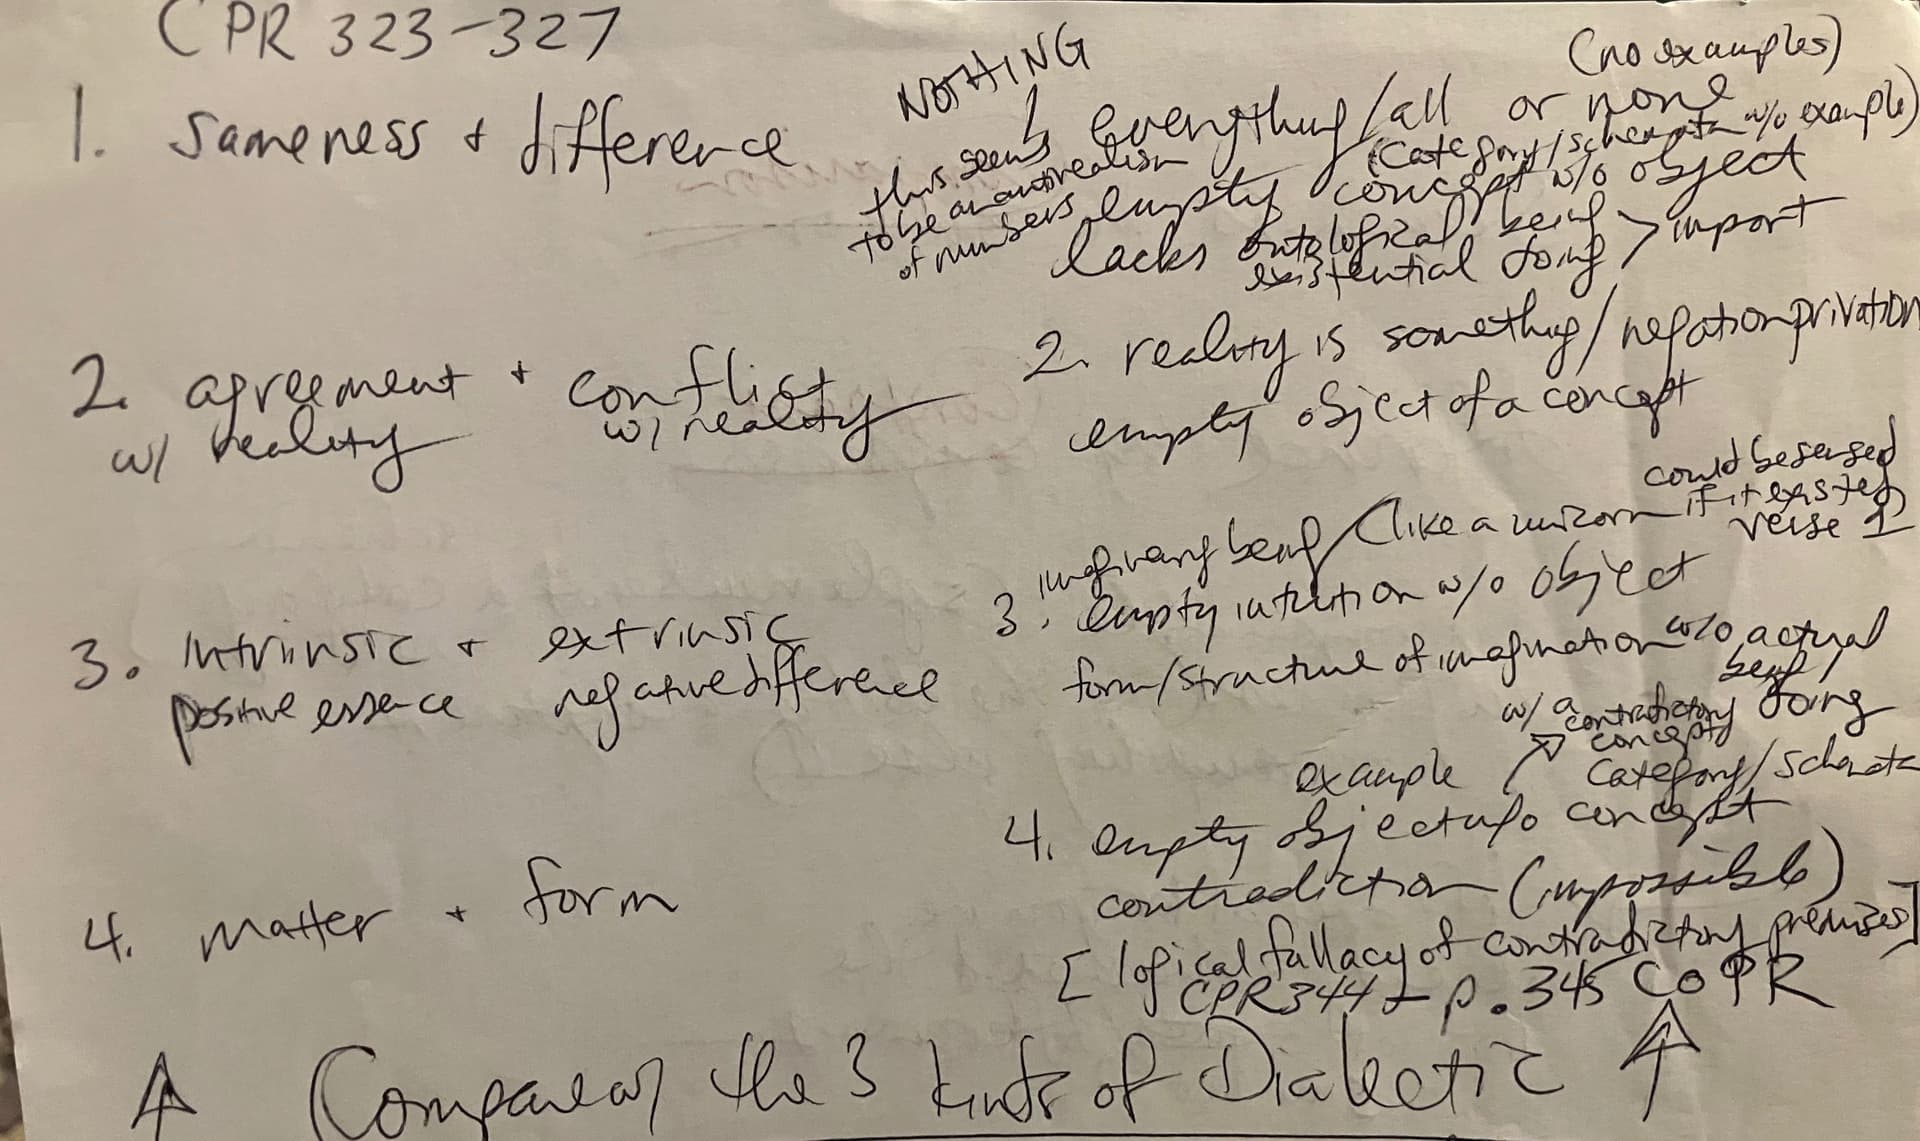 CPR 323-327
1. Sameness + difference
2. agreement + conflict
w/ reality w/ reality
3. intrinsic + extrinsic
positive essence negative difference
4. matter + form
NOTHING
(no examples)
everything/all or none
(category/schemata w/o example)
this seems
to be an antirealism
of numbers
empty concept w/o object
lacks ontological being > import
existential doing
2. reality is something/negation privation
empty object of a concept
could be sensed
if it existed
imaginary being (like a unicorn
verse 1
3. empty intuition w/o object
form/structure of imagination w/o actual
being/
doing
w/ a contradictory
concept
example
category/schemata
4. empty object w/o concept
contradiction (impossible)
[logical fallacy of contradictory premises]
CPR 344 - p. 345 CoPR
Compare w/ the 3 kinds of Dialectic